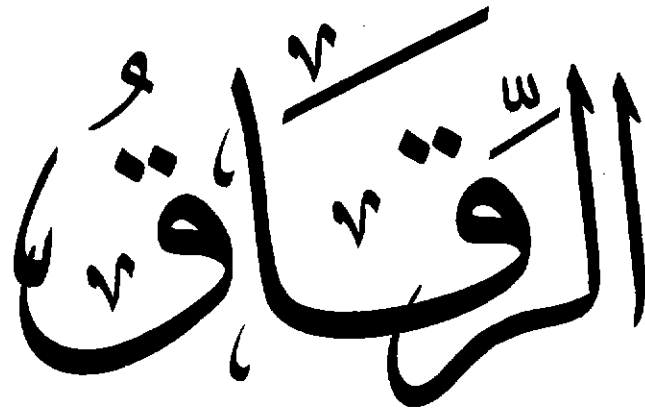 الرَّقَاقُ